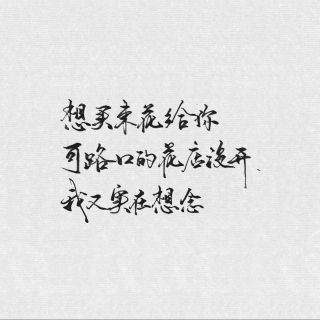 想买束花给你
可路口的花店没开.
我又实在想念